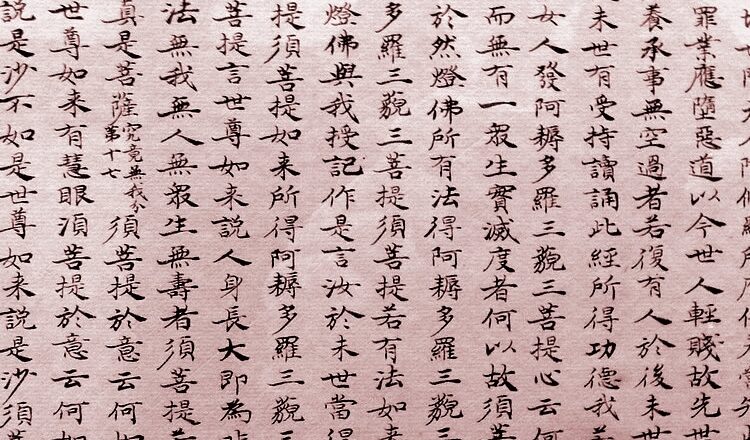 罪業應墮惡道以今世人輕賤故先世
養承事無空過者若復有人於後末世
末世有受持讀誦此經所得功德我
女人發阿耨多羅三藐三菩提心云何
而無有一眾生實滅度者何以故須
於然燈佛所有法得阿耨多羅三藐三
多羅三藐三菩提須菩提若有法如来
燈佛與我授記作是言汝於未世當得
提須菩提如来所得阿耨多羅三藐三
菩提言世尊如来說人身長大即為
法無我無人無眾生無壽者須菩提
真是菩薩究竟無我分第十七須菩提於意云何如
世尊如来有慧眼須菩提於意云何如
說是沙不如是世尊如来說是沙須